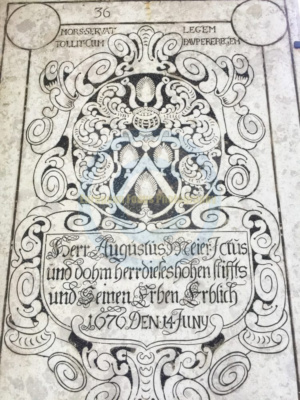 36
MORS SERVAT LEGEM
TOLLIT CUM PAUPERE REGEM
Herr Augustus Meier Jctus
und dohm herr dieses hohen stiffts
und Seinen Erben Erblich
1676 DEN 14 JUNY